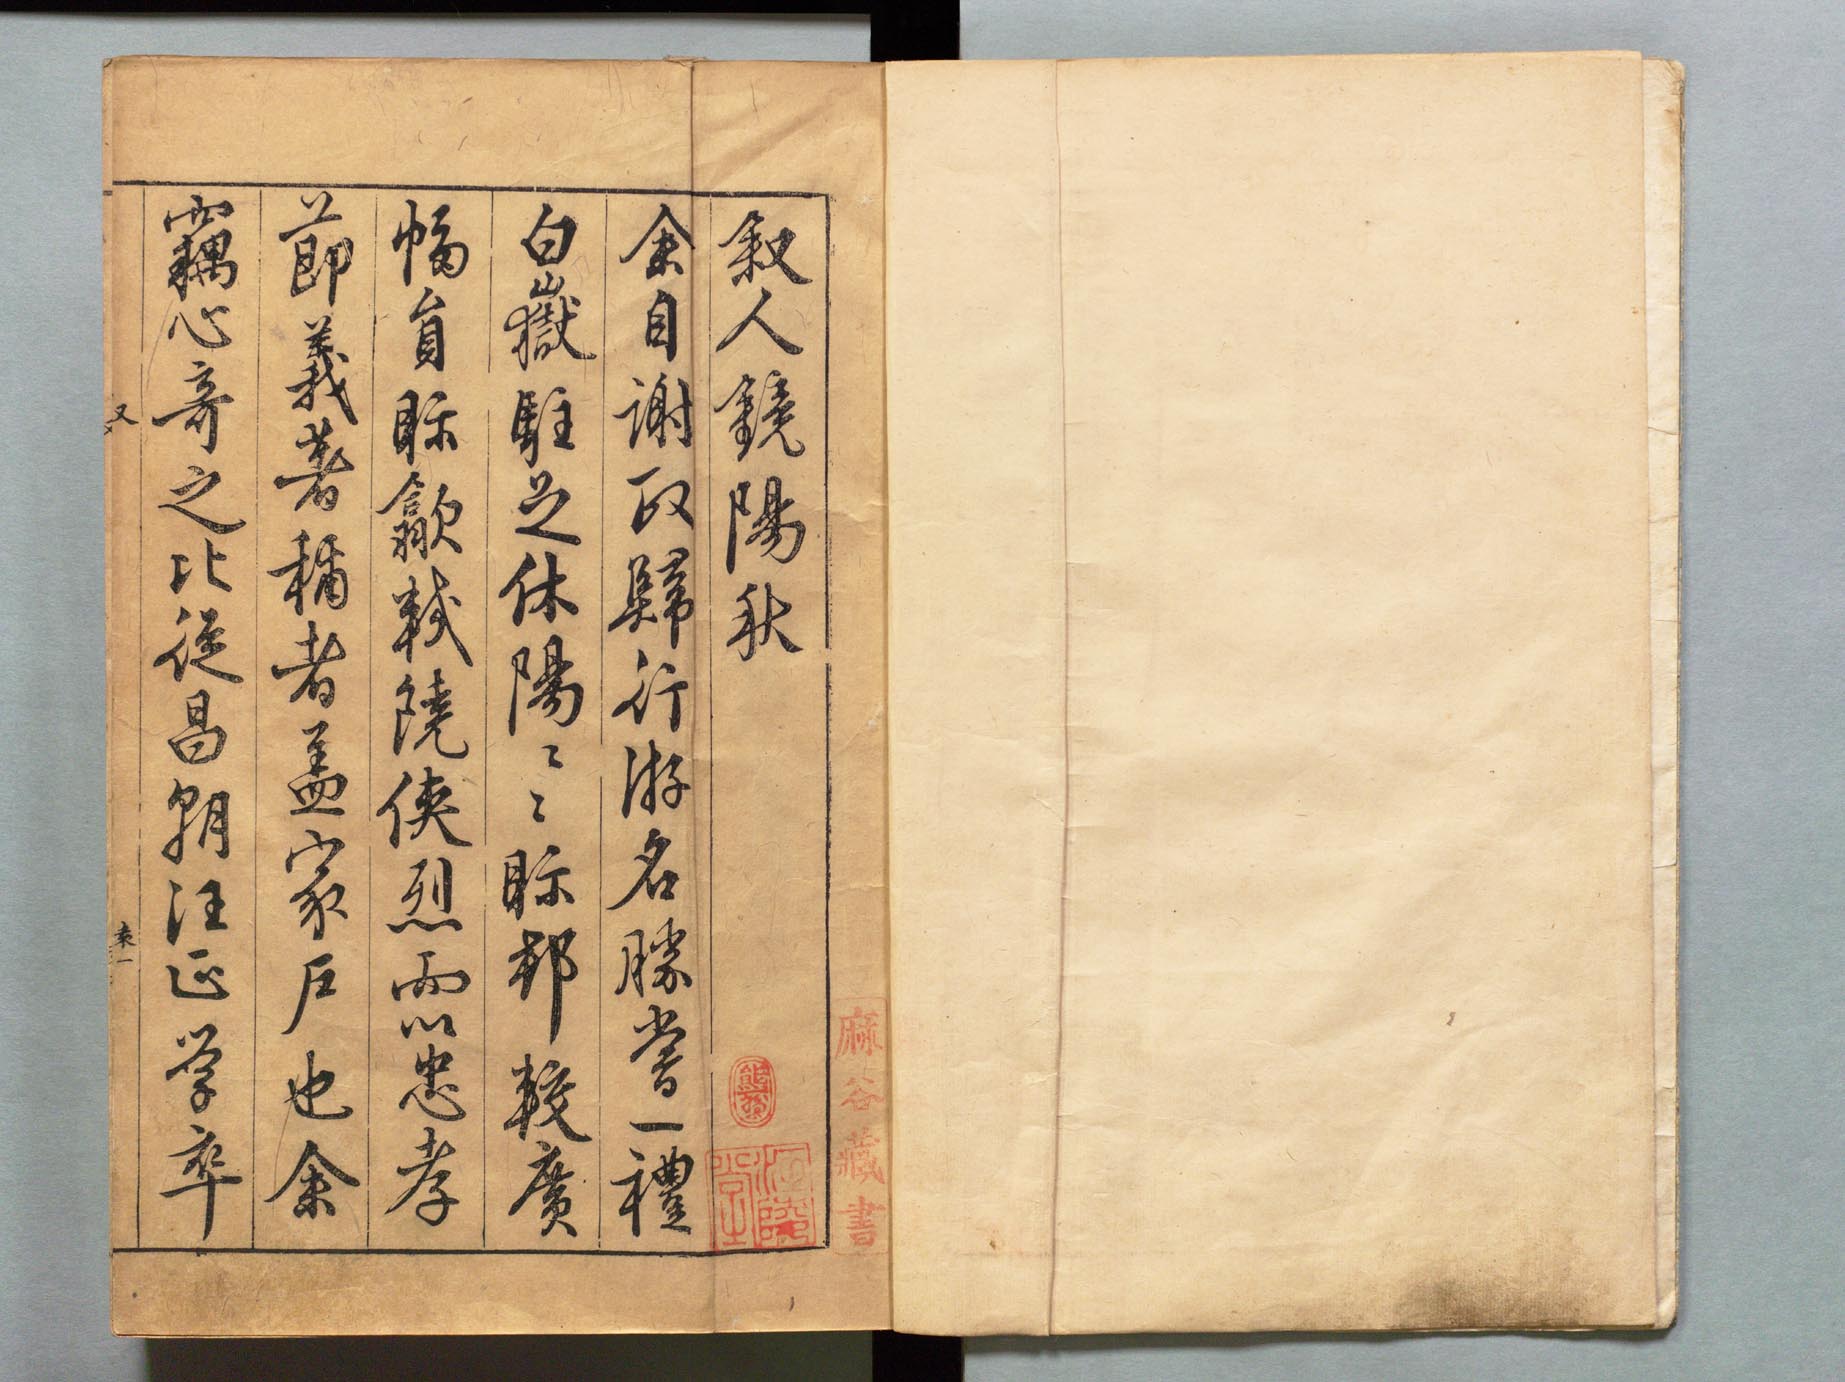 叙人鏡陽秋
余自謝政歸行游名勝嘗一禮
白嶽駐之休陽〻〻眎較廣
幅員眎歙饒俠烈而以忠孝
節義著稱者盖家戶也余
竊心奇之比從昌朝汪正學卒
又
袁一
麻谷藏書